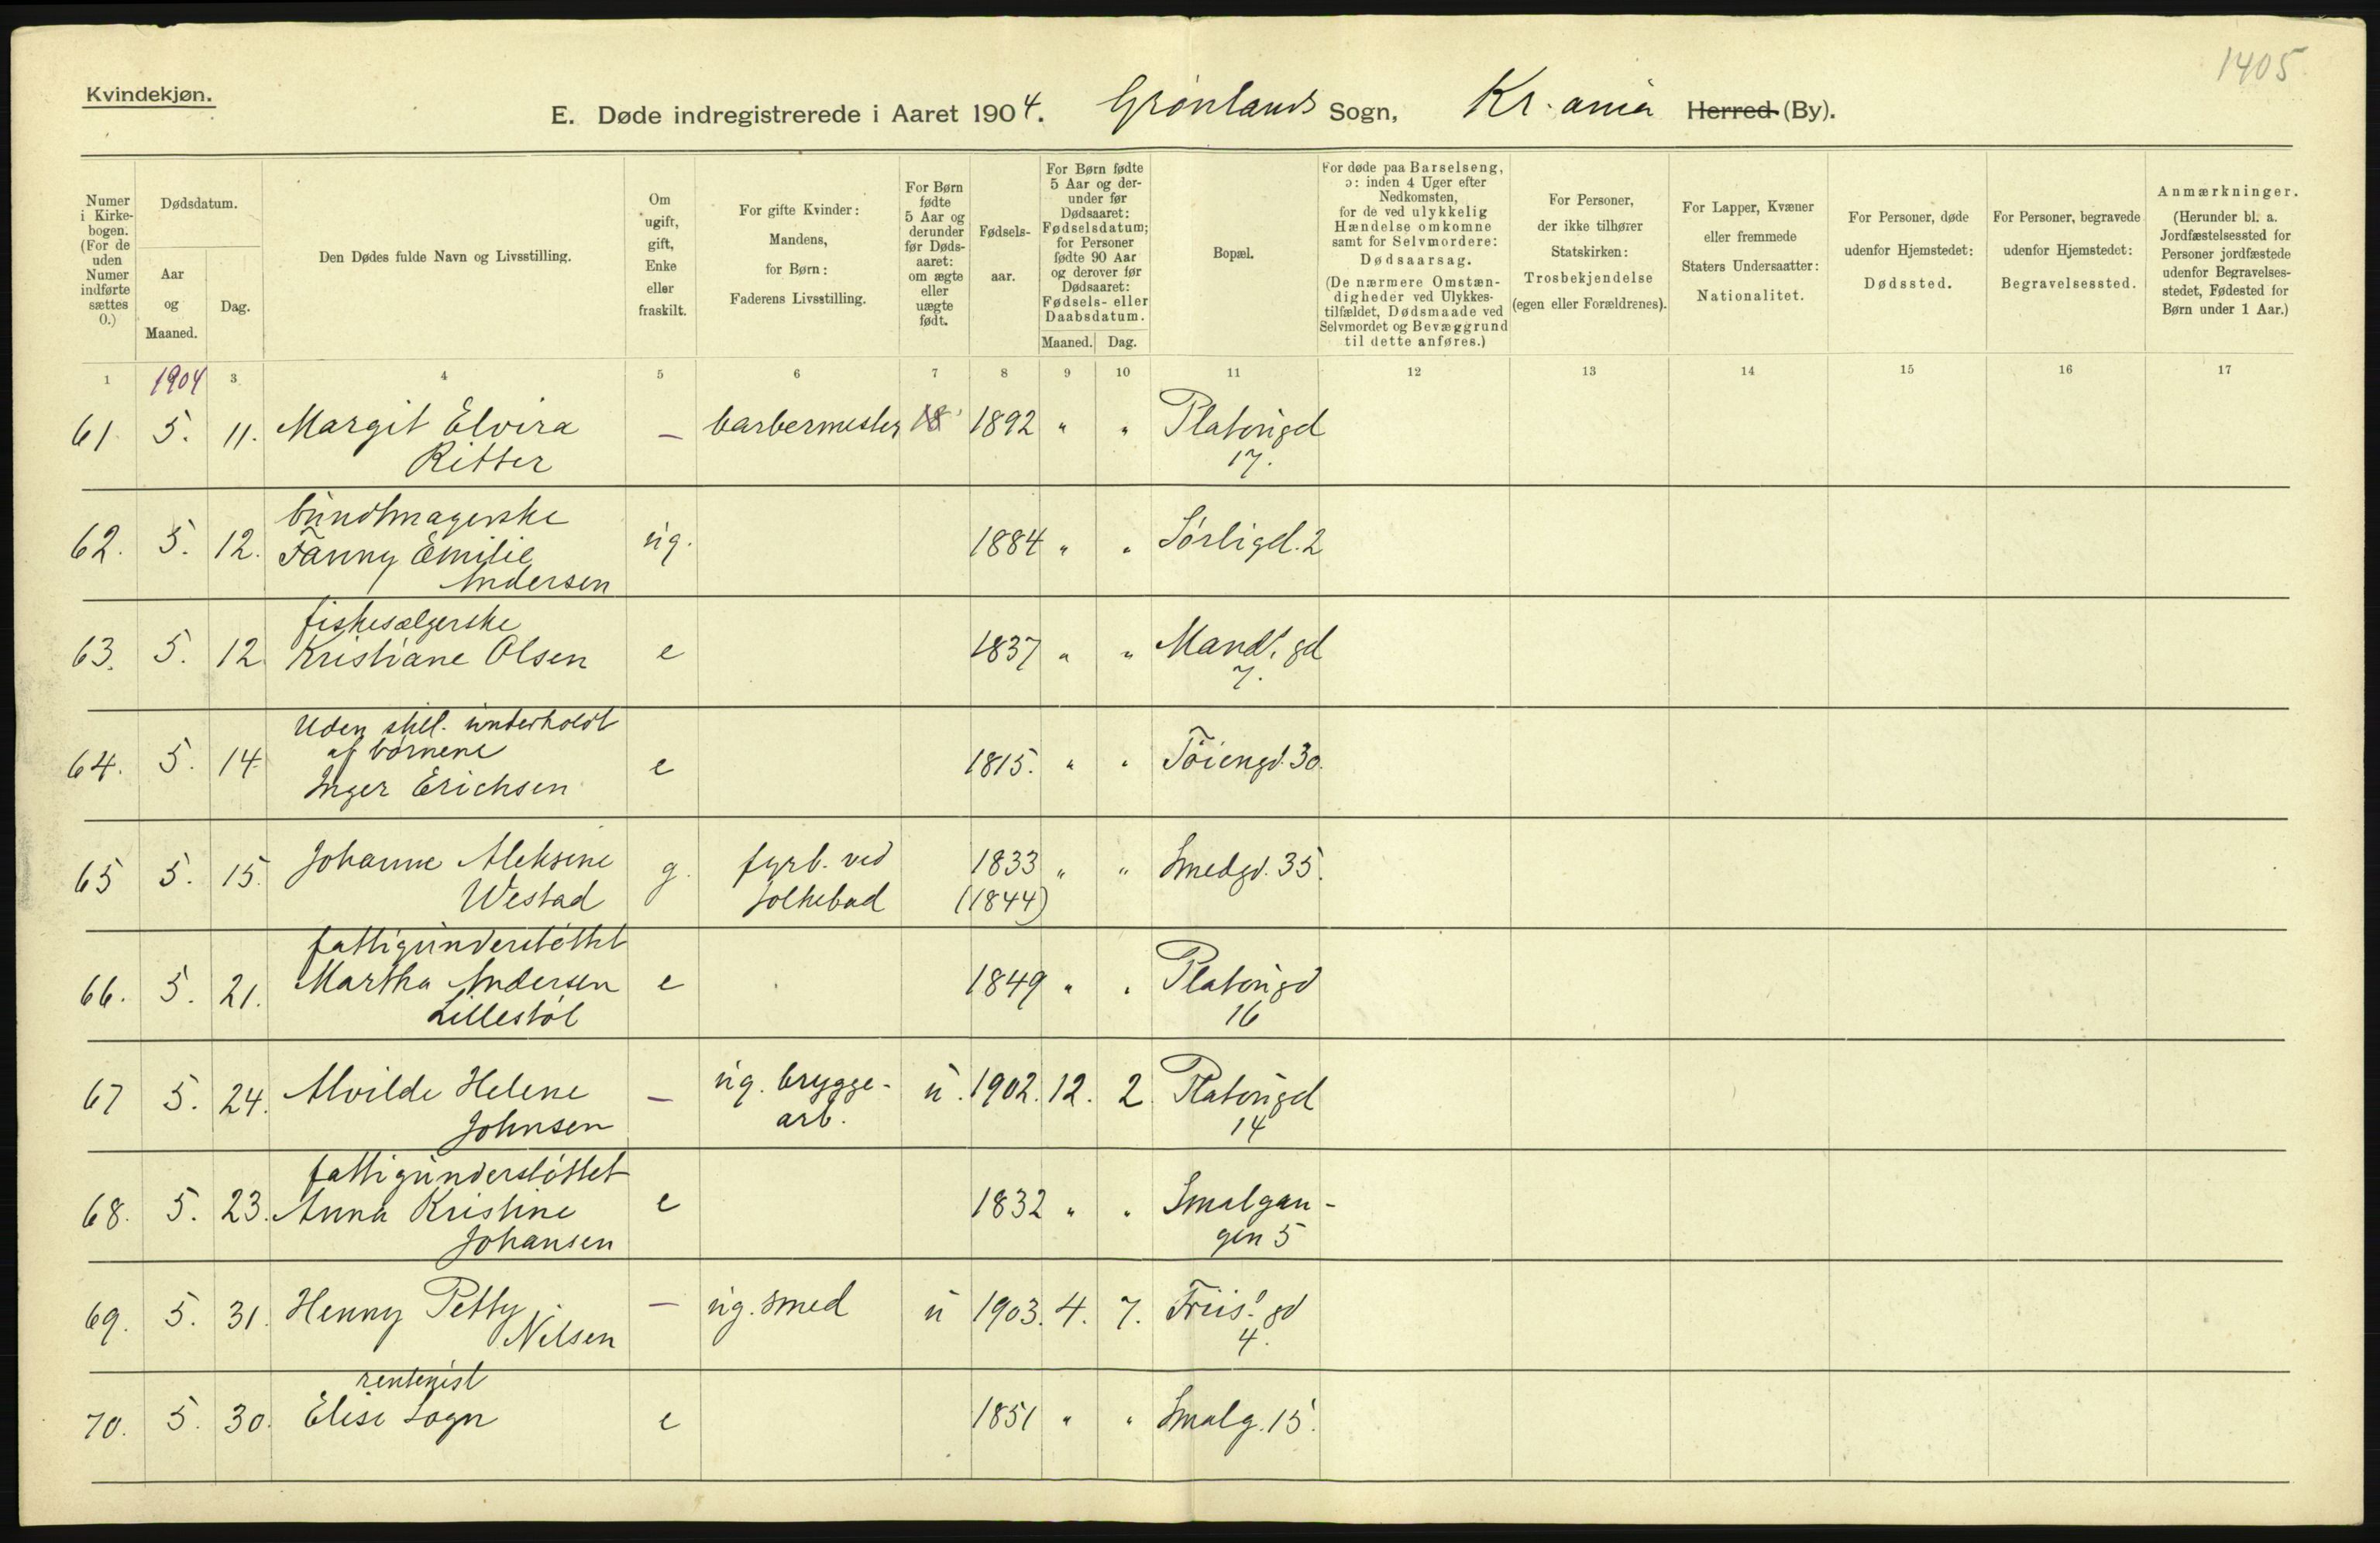 1405
Kvindekjøn.
E. Døde indregistrerede i Aaret 1904. Grønlands Sogn, Kr.ania Herred (By).
Numer i Kirkebogen. (For de uden Numer indførte sættes 0.)
Dødsdatum.
Aar og Maaned.
Dag.
Den Dødes fulde Navn og Livsstilling.
Om ugift, gift, Enke eller fraskilt.
For gifte Kvinder: Mandens, for Børn: Faderens Livsstilling.
For Børn fødte 5 Aar og derunder før Dødsaaret: om ægte eller uægte født.
Fødselsaar.
For Børn fødte 5 Aar og derunder før Dødsaaret: Fødselsdatum; for Personer fødte 90 Aar og derover før Dødsaaret: Fødsels- eller Daabsdatum.
Maaned. Dag.
Bopæl.
For døde paa Barselseng, ɔ: inden 4 Uger efter Nedkomsten, for de ved ulykkelig Hændelse omkomne samt for Selvmordere: Dødsaarsag.
(De nærmere Omstændigheder ved Ulykkestilfældet, Dødsmaade ved Selvmordet og Bevæggrund til dette anføres.)
For Personer, der ikke tilhører Statskirken: Trosbekjendelse (egen eller Forældrenes).
For Lapper, Kvæner eller fremmede Staters Undersaatter: Nationalitet.
For Personer, døde udenfor Hjemstedet: Dødssted.
For Personer, begravede udenfor Hjemstedet: Begravelsessted.
Anmærkninger.
(Herunder bl. a. Jordfæstelsessted for Personer jordfæstede udenfor Begravelsesstedet, Fødested for Børn under 1 Aar.)
1 1904 3 4 5 6 7 8 9 10 11 12 13 14 15 16 17
61 5. 11. Margit Elvira — barbermester 1892 " " Platousgd
Ritter 17.
bundtmagerske
62. 5. 12. Fanny Emilie ug. 1884 " " Sørligd. 2
Andersen
fiskesælgerske
63. 5. 12 Kristiane Olsen e 1837 " " Mand! gd
7.
Uden still. underholdt
af børnene
64. 5. 14. Inger Erichsen e 1815. " " Tøiengd. 30.
65 5. 15. Johanne Aleksine g. fyrb. ved 1833 " " Smedgd. 35.
Westad folkebad (1844)
fattigunderstøttet
66. 5. 21. Martha Andersen e 1849 " " Platousgd
Lillestøl 16
67 5. 24. Alvilde Helene — ug. brygge- u. 1902. 12. 2. Platousgd
Johnsen arb. 14
fattigunderstøttet
68. 5. 23. Anna Kristine e 1832 " " Smalgan-
Johansen gen 5
69. 5. 31. Henny Petty — ug. smed u 1903. 4. 7. Friis! gd
Nilsen 4.
rentenist
70. 5. 30. Elise Sogn e 1851 " " Smalg. 15.